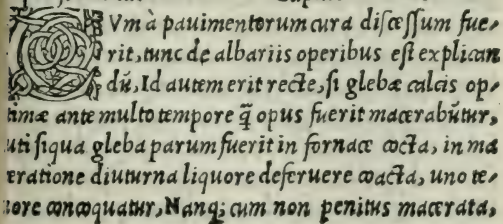 CVm à pauimentorum cura discessum fue-
rit, tunc de albariis operibus est explican
dũ, Id autem erit recte, si glebæ calcis op-
timæ ante multo tempore q̃ opus fuerit macerabũtur,
uti siqua gleba parum fuerit in fornace cocta, in ma
ceratione diuturna liquore deferuere coacta, uno te-
nore concoquatur, Nanq; cum non penitus macerata,